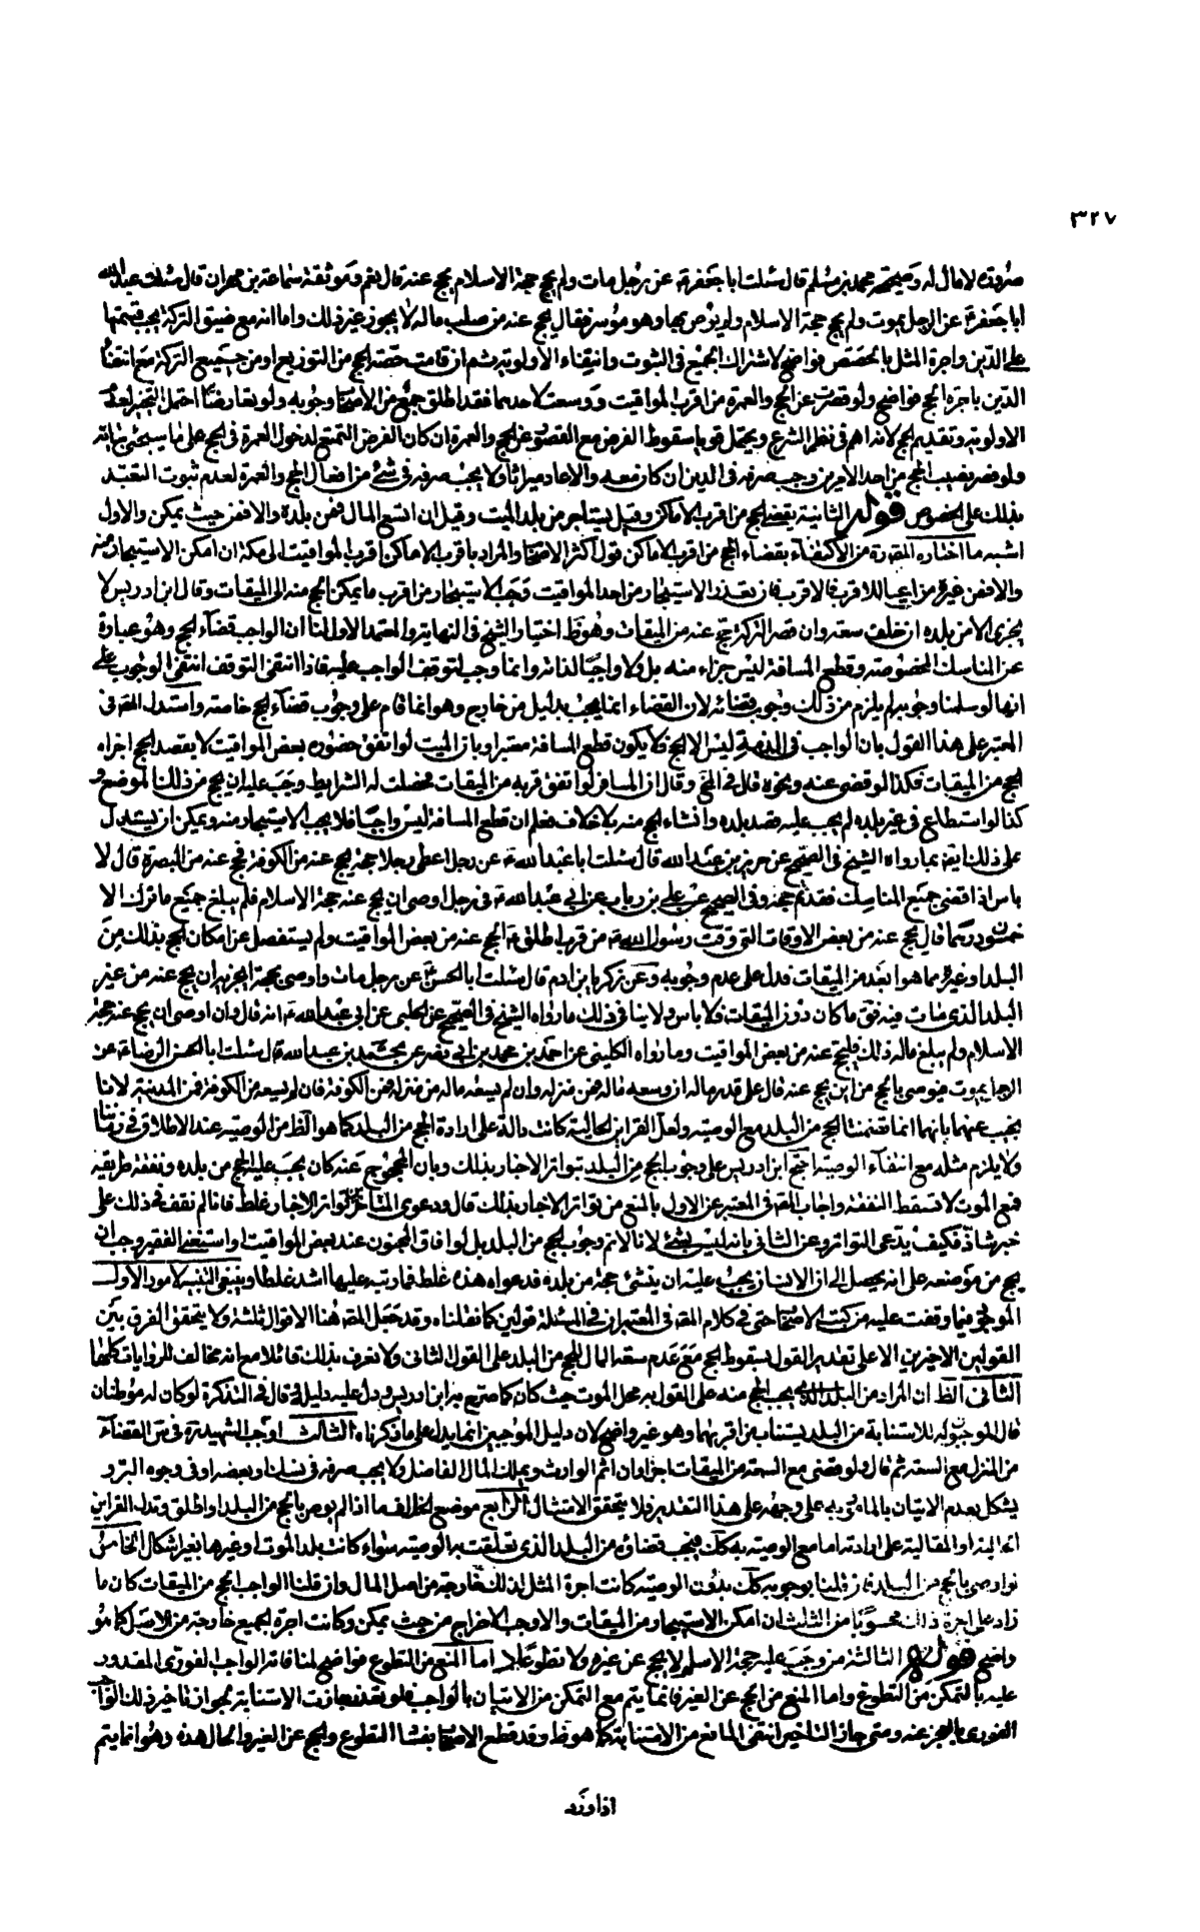 ٣٢٧
صرورة لا مال له وصحيحة محمد بن مسلم قال سئلت ابا جعفر ع عن رجل مات ولم يحج حجة الاسلام يحج عنه قال نعم وموثقة سماعة بن مهران قال سئلت عبد الله
ابا جعفر ع عن الرجل يموت ولم يحج حجة الاسلام ولم يوص بها وهو موسر فقال يحج عنه من صلب ماله لا يجوز غير ذلك واما انه مع ضيق التركة يجب قسمتها
على الدين واجرة المثل بالحصص فواضح لاشتراك الجميع في الثبوت وانتفاء الاولوية ثم ان قامت حصة الحج من التوزيع او من جميع التركة مع انتفاء
الدين باجرة الحج فواضح ولو قصرت عن الحج والعمرة من اقرب المواقيت ووسعت لاحدهما فقد اطلق جمع من الاصحاب وجوبه ولو تعارضا احتمل التخيير لعدم
الاولوية وتقديم الحج لانه اهم في نظر الشرع ويحتمل قويا سقوط الفرض مع القصور عن الحج والعمرة ان كان الفرض التمتع لدخول العمرة في الحج على ما سيجئ بيانه
ولو قصر نصيب الحج من احد الامرين وجب صرفه في الدين ان كان معه والا عاد ميراثا ولا يجب صرفه في شئ من افعال الحج والعمرة لعدم ثبوت التعبد
بذلك على الخصوص قوله الثانية يقضى الحج من اقرب الاماكن وقيل يستاجر من بلد الميت وقيل ان اتسع المال فمن بلده والا فمن حيث يمكن والاول
اشبه ما اختاره المصنف ره من الاكتفاء بقضاء الحج من اقرب الاماكن قول اكثر الاصحاب والمراد باقرب الاماكن اقرب المواقيت الى مكة ان امكن الاستيجار منه
والا فمن غيره مراعيا للاقرب فالاقرب فان تعذر الاستيجار من احد المواقيت وجب الاستيجار من اقرب ما يمكن الحج منه الى الميقات وقال ابن ادريس لا
يجزى الا من بلده ان خلف سعة وان قصر التركة حج عنه من الميقات وهو ظ اختيار الشيخ في النهاية والمعتمد الاول لنا ان الواجب قضاء الحج وهو عبارة
عن المناسك المخصوصة وقطع المسافة ليس جزاء منه بل ولا واجبا لذاته وانما وجب لتوقف الواجب عليه فاذا انتفى التوقف انتفى الوجوب على
انها لو سلمنا وجوبه لم يلزم من ذلك وجوب قضائه لان القضاء انما يجب بدليل من خارج وهو انما قام على وجوب قضاء الحج خاصة واستدل المص في
المعتبر على هذا القول بان الواجب في الذمة ليس الا الحج فلا يكون قطع المسافة معتبرا وبان الميت لو اتفق حضوره بعض المواقيت لا بقصد الحج اجزاه
الحج من الميقات فكذا لو قضى عنه ونحوه قال في المنتهى وقال ان المسافر لو اتفق قربه من الميقات فحصلت له الشرايط وجب عليه ان يحج من ذلك الموضع و
كذا لو استطاع في غير بلده لم يجب عليه قصد بلده وانشاء الحج منه بلا خلاف فعلم ان قطع المسافة ليس واجبا فلا يجب الاستيجار منه ويمكن ان يستدل
على ذلك ايضا بما رواه الشيخ في الصحيح عن حريز بن عبد الله قال سئلت ابا عبد الله ع عن رجل اعطى رجلا حجة يحج عنه من الكوفة فحج عنه من البصرة قال لا
باس اذا قضى جميع المناسك فقد تم حجه وفي الصحيح عن علي بن رباب عن ابي عبد الله ع في رجل اوصى ان يحج عنه حجة الاسلام فلم يبلغ جميع ما ترك الا
خمسون درهما قال يحج عنه من بعض الاوقات التي وقت رسول الله ص من قرب اطلق ع الحج عنه من بعض المواقيت ولم يستفصل عن امكان الحج بذلك من
البلد او غيره مما هو ابعد من الميقات فدل على عدم وجوبه وعن زكريا بن ادم قال سئلت ابا الحسن ع عن رجل مات واوصى بحجة ايجزيه ان يحج عنه من غير
البلد الذي مات فيه فق ما كان دون الميقات فلا باس ولا ينافي ذلك ما رواه الشيخ في الصحيح عن الحلبي عن ابي عبد الله ع انه قال وان اوصى ان يحج عنه حجة
الاسلام ولم يبلغ ماله ذلك فليحج عنه من بعض المواقيت وما رواه الكليني عن احمد بن محمد بن ابي نصر عن محمد بن عبد الله قال سئلت ابا الحسن الرضا ع عن
الرجل يموت فيوصى بالحج من اين يحج عنه قال على قدر ماله ان وسعه ماله فمن منزله وان لم يسعه ماله من منزله فمن الكوفة فان لم يسعه من الكوفة فمن المدينة لانا
نجيب عنهما بانهما انما تضمنتا الحج من البلد مع الوصية ولعل القراين الحالية كانت دالة على ارادة الحج من البلد كما هو الظ من الوصية عند الاطلاق في زماننا
ولا يلزم مثله مع انتفاء الوصية احتج ابن ادريس على وجوب الحج من البلد بتواتر الاخبار بذلك وبان المحجوج عنه كان يجب عليه الحج من بلده ونفقة طريقه
فمع الموت لا تسقط النفقة واجاب المص في المعتبر عن الاول بالمنع من تواتر الاخبار بذلك قال ودعوى المتاخر تواتر الاخبار غلط فانا لم نقف في ذلك على
خبر شاذ فكيف يدعى التواتر وعن الثاني بانه ليس بشئ لانا لا نم وجوب الحج من البلد بل لو افاق المجنون عند بعض المواقيت او استغنى الفقير وجب ان
يحج من موضعه على انه يحصل الى ان الانسان يجب عليه ان ينشئ حجة من بلده فدعواه هذه غلط فما رتبه عليها اشد غلطا وينبغي التنبيه لامور الاول
الموجود فيما وقفت عليه من كتب الاصحاب حتى في كلام المص في المعتبر ان في المسئلة قولين كما نقلناه وقد جعل المص هنا الاقوال ثلثة ولا يتحقق الفرق بين
القولين الاخيرين الا على تقدير القول بسقوط الحج مع عدم سعة المال للحج من البلد على القول الثاني ولا نعرف بذلك قائلا مع انه مخالف للروايات كلها
الثاني الظ ان المراد من البلد الذي يجب الحج منه على القول به محل الموت حيث كان كما صرح به ابن ادريس ودل عليه دليله قال في التذكرة لو كان له موطنان
قال الموجبون له للاستنابة من البلد يستناب من اقربهما وهو غير واضح لان دليل الموجبين انما يدل على ما ذكرناه الثالث اوجب الشهيد ره في س القضاء
من المنزل مع السعة ثم قال ولو قضى مع السعة من الميقات اجزأ وان اثم الوارث ويملك المال الفاضل ولا يجب صرفه في نسك او بعضه او في وجوه البر و
يشكل بعدم الاتيان بالمامور به على وجهه على هذا التقدير فلا يتحقق الامتثال الرابع موضع الخلاف ما اذا لم يوص بالحج من البلد او اطلق وتدل القراين
الحالية او المقالية على ارادته اما مع الوصية به كك فيجب قضاؤه من البلد الذي تعلقت به الوصية سواء كانت بلد الموت او غيرها بغير اشكال الخامس
لو اوصى بالحج من البلد فان قلنا بوجوبه كك بدون الوصية كانت اجرة المثل لذلك خارجة من اصل المال وان قلنا الواجب الحج من الميقات كان ما
زاد على اجرة ذلك محسوبا من الثلث ان امكن الاستيجار من الميقات والا وجب الاخراج من حيث يمكن وكانت اجرة الجميع خارجة من الاصل كما هو
واضح قوله الثالثة من وجب عليه حجة الاسلام لا يحج عن غيره ولا تطوعا اما المنع من التطوع فواضح لمنافاته الواجب الفوري المقدور
عليه بالتمكن من التطوع واما المنع من الحج عن الغير فانما يتم مع التمكن من الاتيان بالواجب فلو تعذر جازت الاستنابة لجواز تاخير ذلك الواجب
الفوري بالعجز عنه ومتى جاز التاخير انتفى المانع من الاستنابة كما هو ظ وقد قطع الاصحاب بفساد التطوع والحج عن الغير والحال هذه وهو انما يتم
اذا ورد